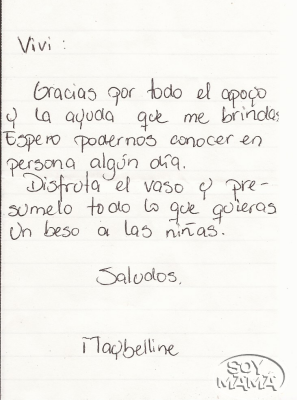 Vivi:
Gracias por todo el apoyo
y la ayuda que me brindas
Espero podernos conocer en
persona algún día.
Disfruta el vaso y pre-
sumelo todo lo que quieras
Un beso a las niñas.
Saludos,
Maybelline
SOY
MAMÁ